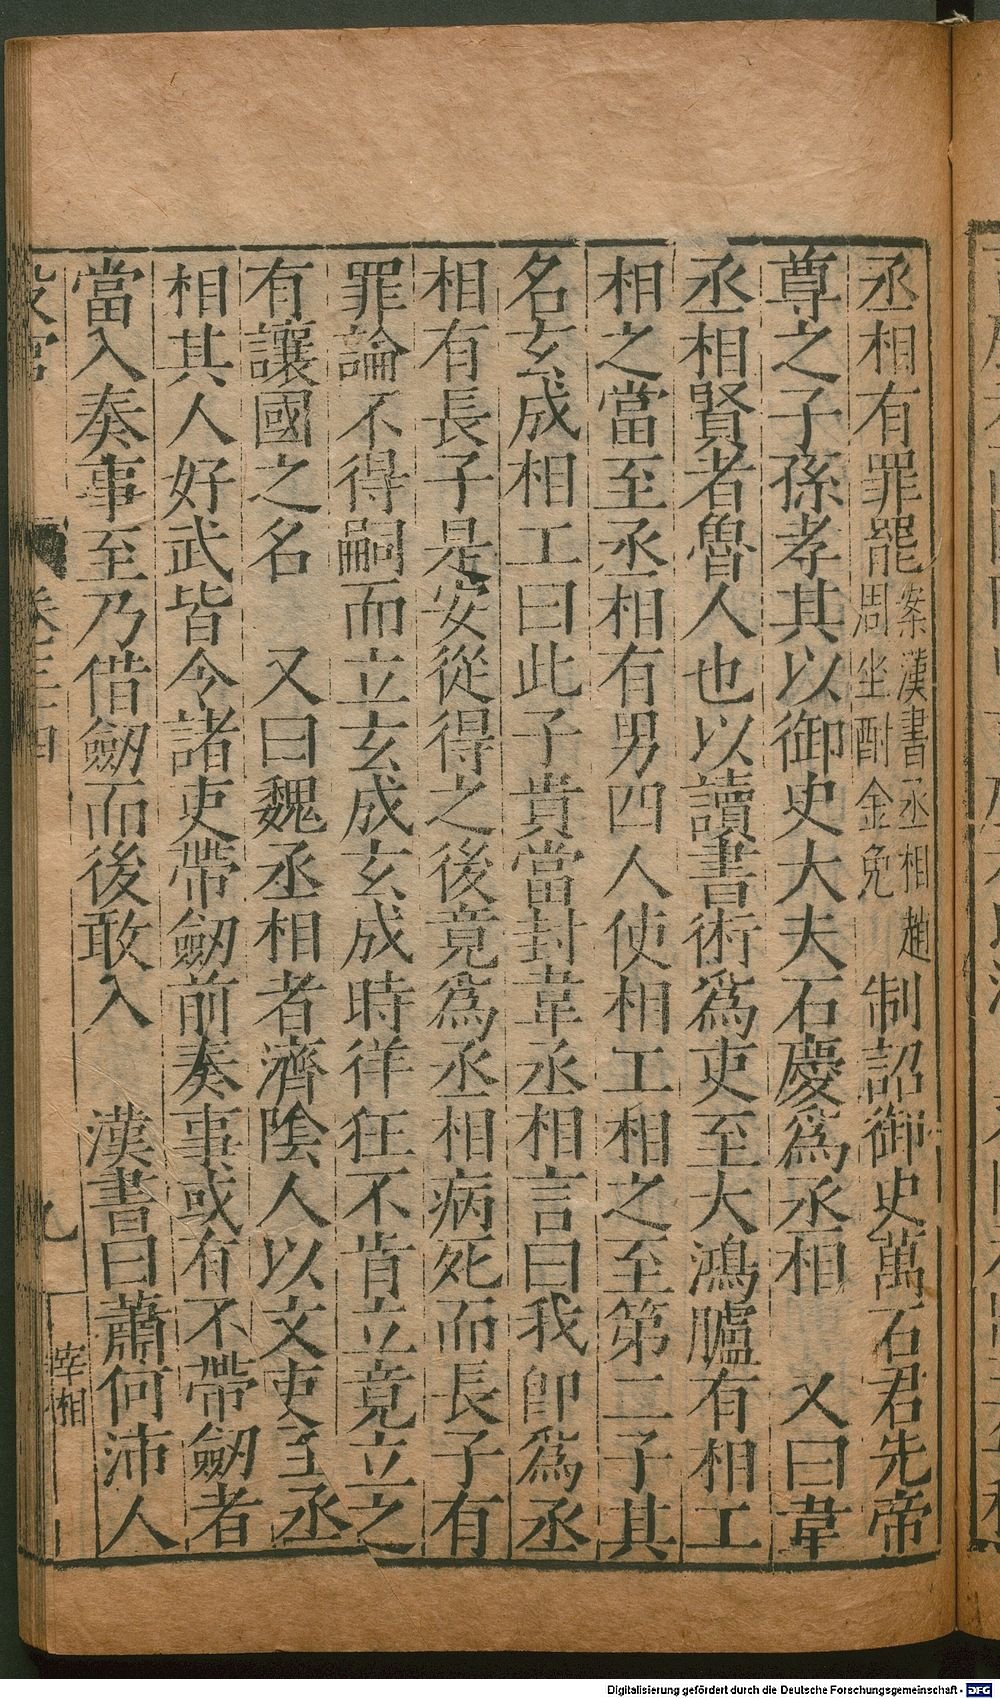 丞相有罪罷案漢書丞相趙周坐酎金免制詔御史萬石君先帝
尊之子孫孝其以御史大夫石慶爲丞相　又曰韋
丞相賢者魯人也以讀書術爲吏至大鴻臚有相工
相之當至丞相有男四人使相工相之至第二子其
名玄成相工曰此子貴當封韋丞相言曰我卽爲丞
相有長子是安從得之後竟爲丞相病死而長子有
罪論不得嗣而立玄成玄成時徉狂不肯立竟立之
有讓國之名　又曰魏丞相者濟陰人以文吏至丞
相其人好武皆令諸吏帶劒前奏事或有不帶劒者
當入奏事至乃借劒而後敢入　漢書曰蕭何沛人
宰相
九
Digitalisierung gefördert durch die Deutsche Forschungsgemeinschaft - DFG